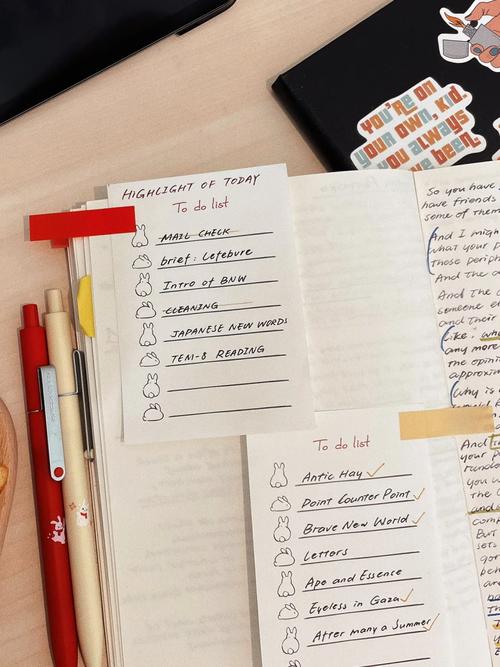 YOU'RE ON
YOUR OWN, KID.
YOU ALWAYS
BEEN.
HIGHLIGHT OF TODAY
To do list
MAIL CHECK
brief: Lefebure
Intro of BNW
CLEANING
JAPANESE NEW WORDS
TEM-8 READING
To do list
Antic Hay
Point Counter Point
Brave New World
Letters
Ape and Essence
Eyeless in Gaza
After many a Summer
So you have
have friends
some of them
And I migh
what your
Those periph
And the c
And the c
someone e
and their
like,
any more
the opini
approxim
Why is
And
your p
rando
would
The
and
com
But
sets
gor
beh
are